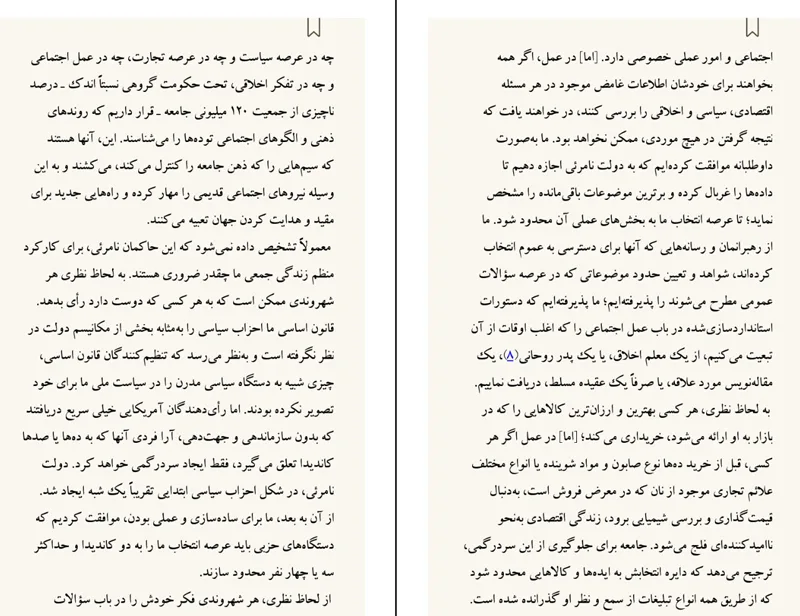 چه در عرصه سیاست و چه در عرصه تجارت، چه در عمل اجتماعی
و چه در تفکر اخلاقی، تحت حکومت گروهی نسبتاً اندک ـ درصد
ناچیزی از جمعیت ۱۲۰ میلیونی جامعه ـ قرار داریم که روندهای
ذهنی و الگوهای اجتماعی توده‌ها را می‌شناسند. این، آنها هستند
که سیم‌هایی را که ذهن جامعه را کنترل می‌کند، می‌کشند و به این
وسیله نیروهای اجتماعی قدیمی را مهار کرده و راه‌هایی جدید برای
مقید و هدایت کردن جهان تعبیه می‌کنند.
معمولاً تشخیص داده نمی‌شود که این حاکمان نامرئی، برای کارکرد
منظم زندگی جمعی ما چقدر ضروری هستند. به لحاظ نظری هر
شهروندی ممکن است که به هر کسی که دوست دارد رأی بدهد.
قانون اساسی ما احزاب سیاسی را به‌مثابه بخشی از مکانیسم دولت در
نظر نگرفته است و به‌نظر می‌رسد که تنظیم‌کنندگان قانون اساسی،
چیزی شبیه به دستگاه سیاسی مدرن را در سیاست ملی ما برای خود
تصویر نکرده بودند. اما رأی‌دهندگان آمریکایی خیلی سریع دریافتند
که بدون سازماندهی و جهت‌دهی، آرا فردی آنها که به ده‌ها یا صدها
کاندیدا تعلق می‌گیرد، فقط ایجاد سردرگمی خواهد کرد. دولت
نامرئی، در شکل احزاب سیاسی ابتدایی تقریباً یک شبه ایجاد شد.
از آن به بعد، ما برای ساده‌سازی و عملی بودن، موافقت کردیم که
دستگاه‌های حزبی باید عرصه انتخاب ما را به دو کاندیدا و حداکثر
سه یا چهار نفر محدود سازند.
از لحاظ نظری، هر شهروندی فکر خودش را در باب سؤالات
اجتماعی و امور عملی خصوصی دارد. [اما] در عمل، اگر همه
بخواهند برای خودشان اطلاعات غامض موجود در هر مسئله
اقتصادی، سیاسی و اخلاقی را بررسی کنند، در خواهند یافت که
نتیجه گرفتن در هیچ موردی، ممکن نخواهد بود. ما به‌صورت
داوطلبانه موافقت کرده‌ایم که به دولت نامرئی اجازه دهیم تا
داده‌ها را غربال کرده و برترین موضوعات باقی‌مانده را مشخص
نماید؛ تا عرصه انتخاب ما به بخش‌های عملی آن محدود شود. ما
از رهبرانمان و رسانه‌هایی که آنها برای دسترسی به عموم انتخاب
کرده‌اند، شواهد و تعیین حدود موضوعاتی که در عرصه سؤالات
عمومی مطرح می‌شوند را پذیرفته‌ایم؛ ما پذیرفته‌ایم که دستورات
استانداردسازی‌شده در باب عمل اجتماعی را که اغلب اوقات از آن
تبعیت می‌کنیم، از یک معلم اخلاق، یا یک پدر روحانی(۸)، یک
مقاله‌نویس مورد علاقه، یا صرفاً یک عقیده مسلط، دریافت نماییم.
به لحاظ نظری، هر کسی بهترین و ارزان‌ترین کالاهایی را که در
بازار به او ارائه می‌شود، خریداری می‌کند؛ [اما] در عمل اگر هر
کسی، قبل از خرید ده‌ها نوع صابون و مواد شوینده یا انواع مختلف
علائم تجاری موجود از نان که در معرض فروش است، به‌دنبال
قیمت‌گذاری و بررسی شیمیایی برود، زندگی اقتصادی به‌نحو
ناامیدکننده‌ای فلج می‌شود. جامعه برای جلوگیری از این سردرگمی،
ترجیح می‌دهد که دایره انتخابش به ایده‌ها و کالاهایی محدود شود
که از طریق همه انواع تبلیغات از سمع و نظر او گذرانده شده است.